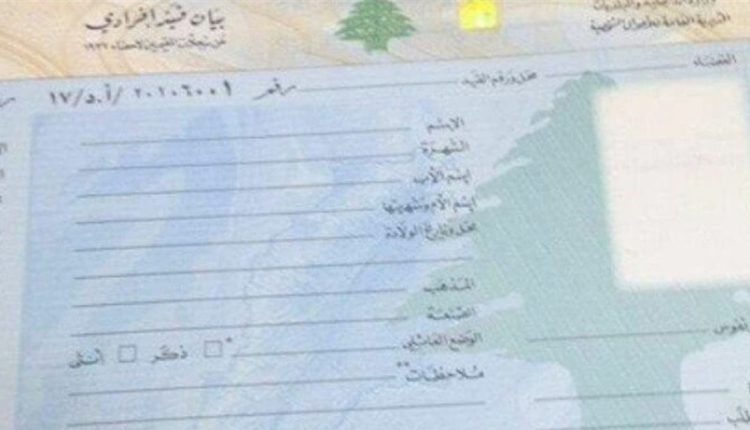 بيان قيد إفرادي
عن سجلات المقيمين لإحصاء ١٩٣٢
المديرية العامة للأحوال الشخصية
القضاء
محل ورقم القيد
رقم ٢٠١٠٦٠٠١ /أ.د/١٧
الإسم
الشهرة
إسم الأب
إسم الأم وشهرتها
محل وتاريخ الولادة
المذهب
الصنعة
الوضع العائلي * ذكر أنثى
ملاحظات **